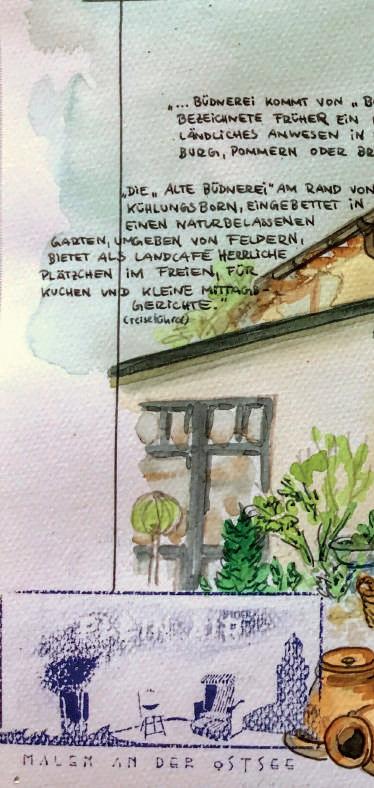 "... BÜDNEREI KOMMT VON "B
BEZEICHNETE FRÜHER EIN
LÄNDLICHES ANWESEN IN
BURG, POMMERN ODER BR
"DIE „ALTE BÜDNEREI" AM RAND VON
KÜHLUNGSBORN, EINGEBETTET IN
EINEN NATURBELASSENEN
GARTEN, UMGEBEN VON FELDERN,
BIETET ALS LANDCAFÉ HERRLICHE
PLÄTZCHEN IM FREIEN, FÜR
KUCHEN UND KLEINE MITTAGS-
GERICHTE."
(reiseführer)
MALEN AN DER OSTSEE